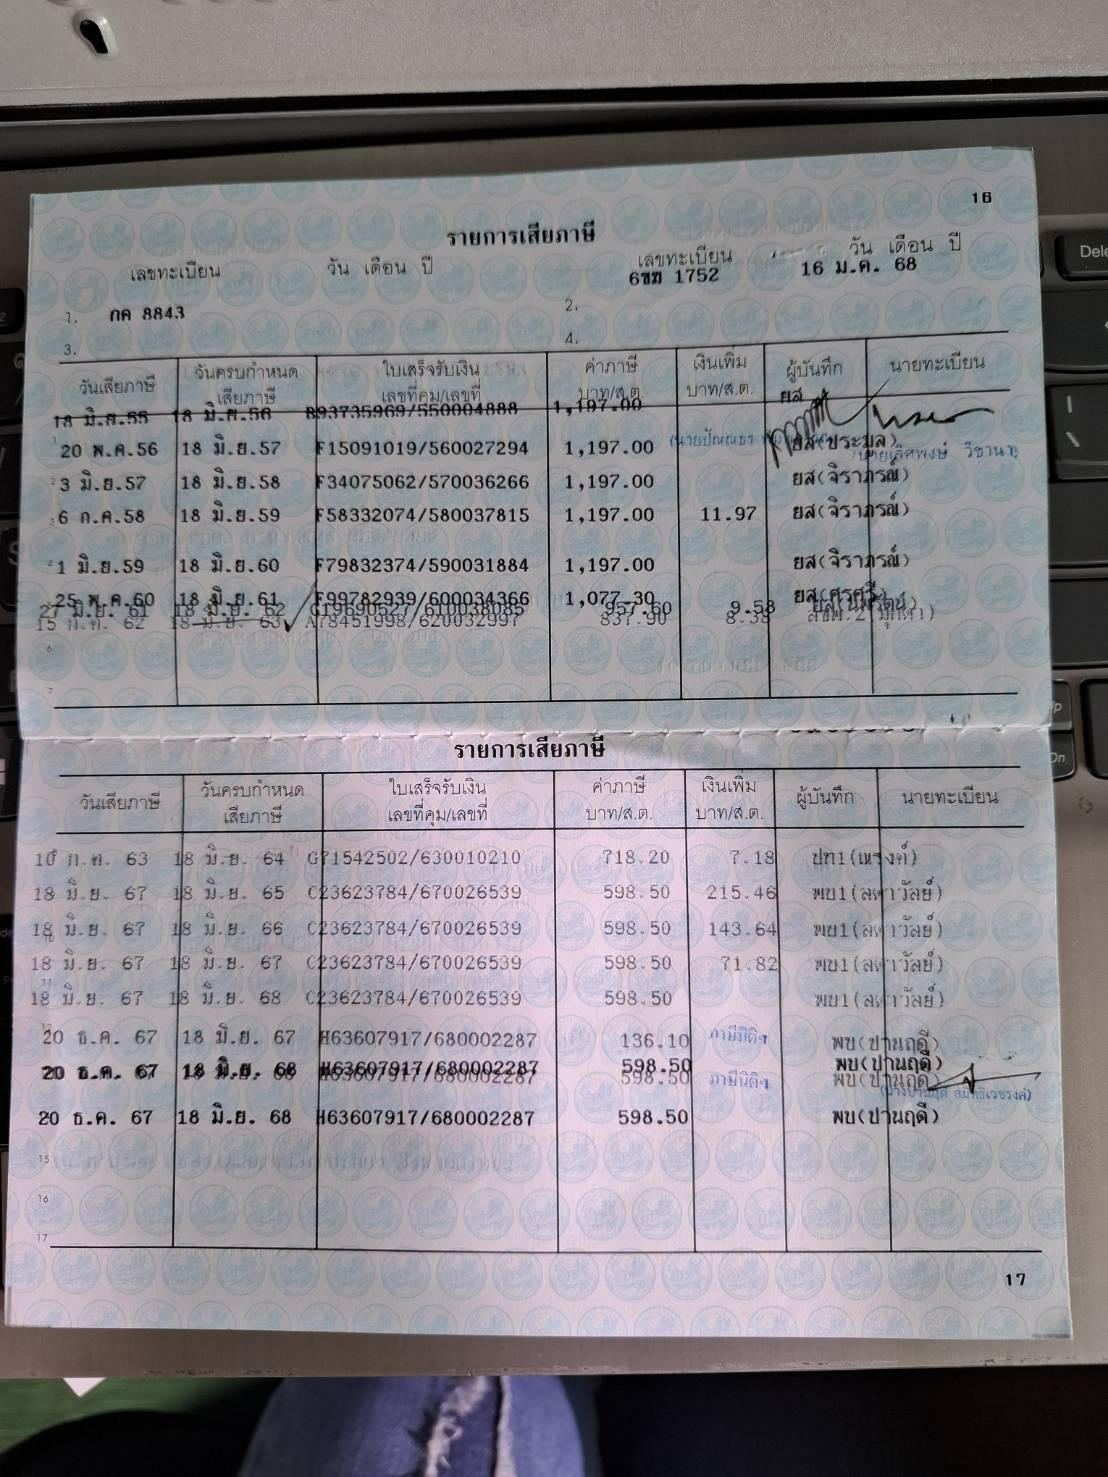 16
รายการเสียภาษี
เลขทะเบียน วัน เดือน ปี เลขทะเบียน วัน เดือน ปี
6ขฆ 1752 16 ม.ค. 68
1. กค 8843 2.
3. 4.
วันเสียภาษี วันครบกำหนดเสียภาษี ใบเสร็จรับเงิน เลขที่คุม/เลขที่ ค่าภาษี บาท/ส.ต. เงินเพิ่ม บาท/ส.ต. ผู้บันทึก นายทะเบียน
18 มิ.ย.55 18 มิ.ย.56 B93735969/550004888 1,197.00 ยส
20 พ.ค.56 18 มิ.ย.57 F15091019/560027294 1,197.00 ยส(ประมูล)
3 มิ.ย.57 18 มิ.ย.58 F34075062/570036266 1,197.00 ยส(จิราภรณ์)
6 ก.ค.58 18 มิ.ย.59 F58332074/580037815 1,197.00 11.97 ยส(จิราภรณ์)
1 มิ.ย.59 18 มิ.ย.60 F79832374/590031884 1,197.00 ยส(จิราภรณ์)
25 พ.ค.60 18 มิ.ย.61 F99782939/600034366 1,077.30
27 มิ.ย. 61 18 มิ.ย. 62 G19690527/610038085 957.60 9.58
15 ก.ค. 62 18 มิ.ย. 63 A78451998/620032997 837.90 8.38
6
7
รายการเสียภาษี
วันเสียภาษี วันครบกำหนดเสียภาษี ใบเสร็จรับเงิน เลขที่คุม/เลขที่ ค่าภาษี บาท/ส.ต. เงินเพิ่ม บาท/ส.ต. ผู้บันทึก นายทะเบียน
10 ก.ค. 63 18 มิ.ย. 64 G71542502/630010210 718.20 7.18 ปท1(ณรงค์)
18 มิ.ย. 67 18 มิ.ย. 65 C23623784/670026539 598.50 215.46 พบ1(ลดาวัลย์)
18 มิ.ย. 67 18 มิ.ย. 66 C23623784/670026539 598.50 143.64 พบ1(ลดาวัลย์)
18 มิ.ย. 67 18 มิ.ย. 67 C23623784/670026539 598.50 71.82 พบ1(ลดาวัลย์)
18 มิ.ย. 67 18 มิ.ย. 68 C23623784/670026539 598.50 พบ1(ลดาวัลย์)
20 ธ.ค. 67 18 มิ.ย. 67 H63607917/680002287 136.10 ภาษีนิติฯ พบ(ปานฤดี)
20 ธ.ค. 67 18 มิ.ย. 68 H63607917/680002287 598.50 พบ(ปานฤดี)
H63607917/680002287 598.50 ภาษีนิติฯ พบ(ปานฤดี)
20 ธ.ค. 67 18 มิ.ย. 68 H63607917/680002287 598.50 พบ(ปานฤดี)
15
16
17
17